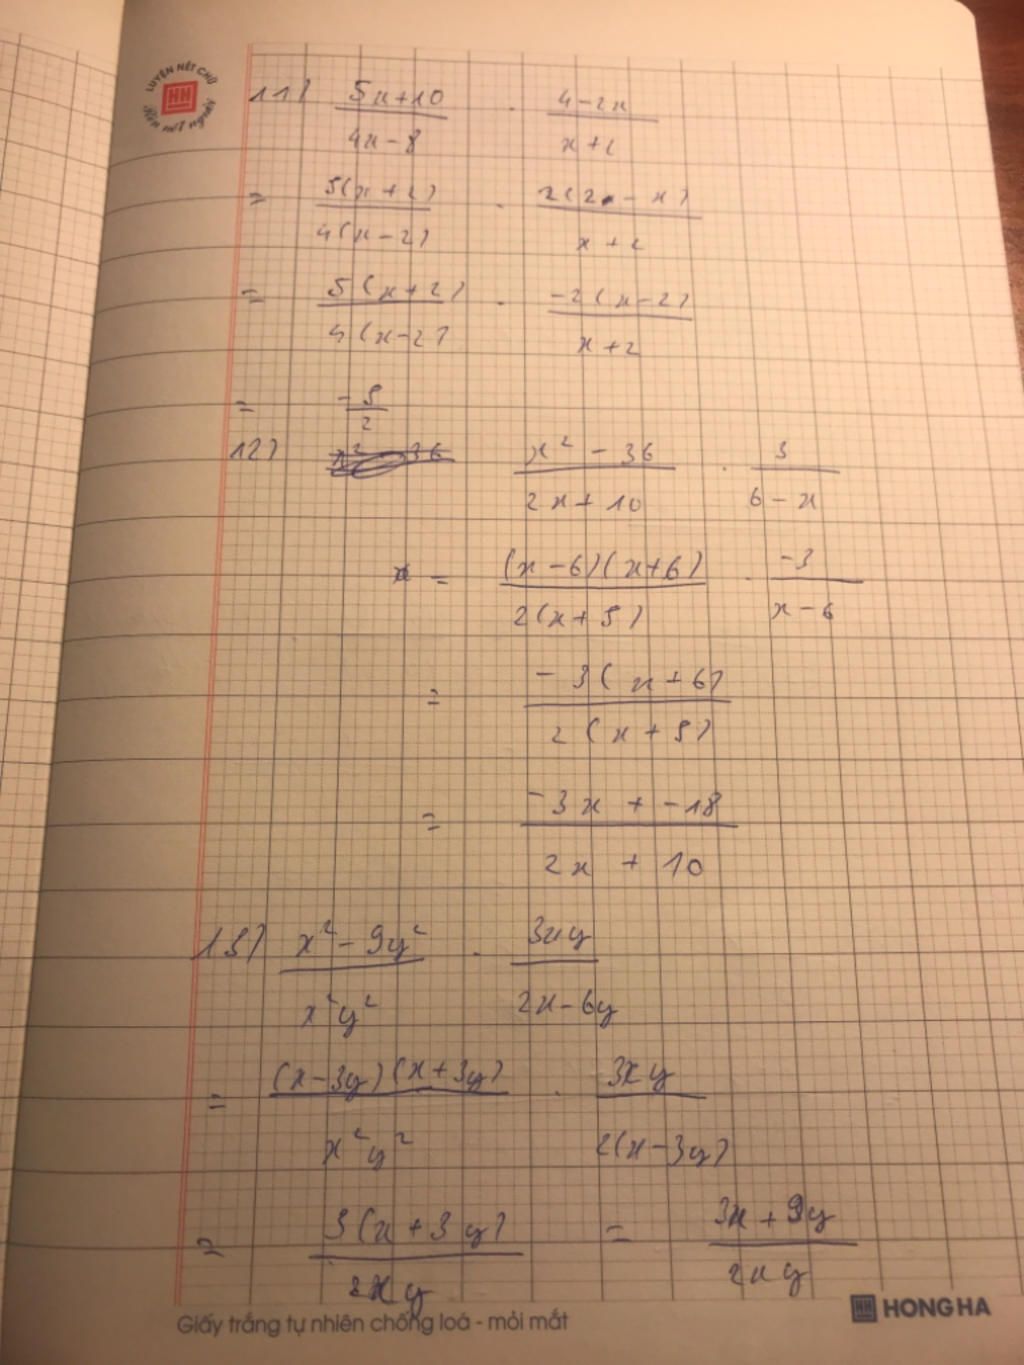 LUYỆN NÉT CHỮ
HH
Rèn nết người
11) (5x+10)/(4x-8) . (4-2x)/(x+2)
= 5(x+2)/4(x-2) . 2(2-x)/x+2
= 5(x+2)/4(x-2) . -2(x-2)/x+2
= -5/2
12) x²-36/2x+10 . 3/6-x
= (x-6)(x+6)/2(x+5) . -3/x-6
= -3(x+6)/2(x+5)
= -3x + -18/2x + 10
13) x²-9y²/x²y² . 3xy/2x-6y
= (x-3y)(x+3y)/x²y² . 3xy/2(x-3y)
= 3(x+3y)/2xy = 3x+9y/2xy
Giấy trắng tự nhiên chống loá - mỏi mắt
HH HONG HA